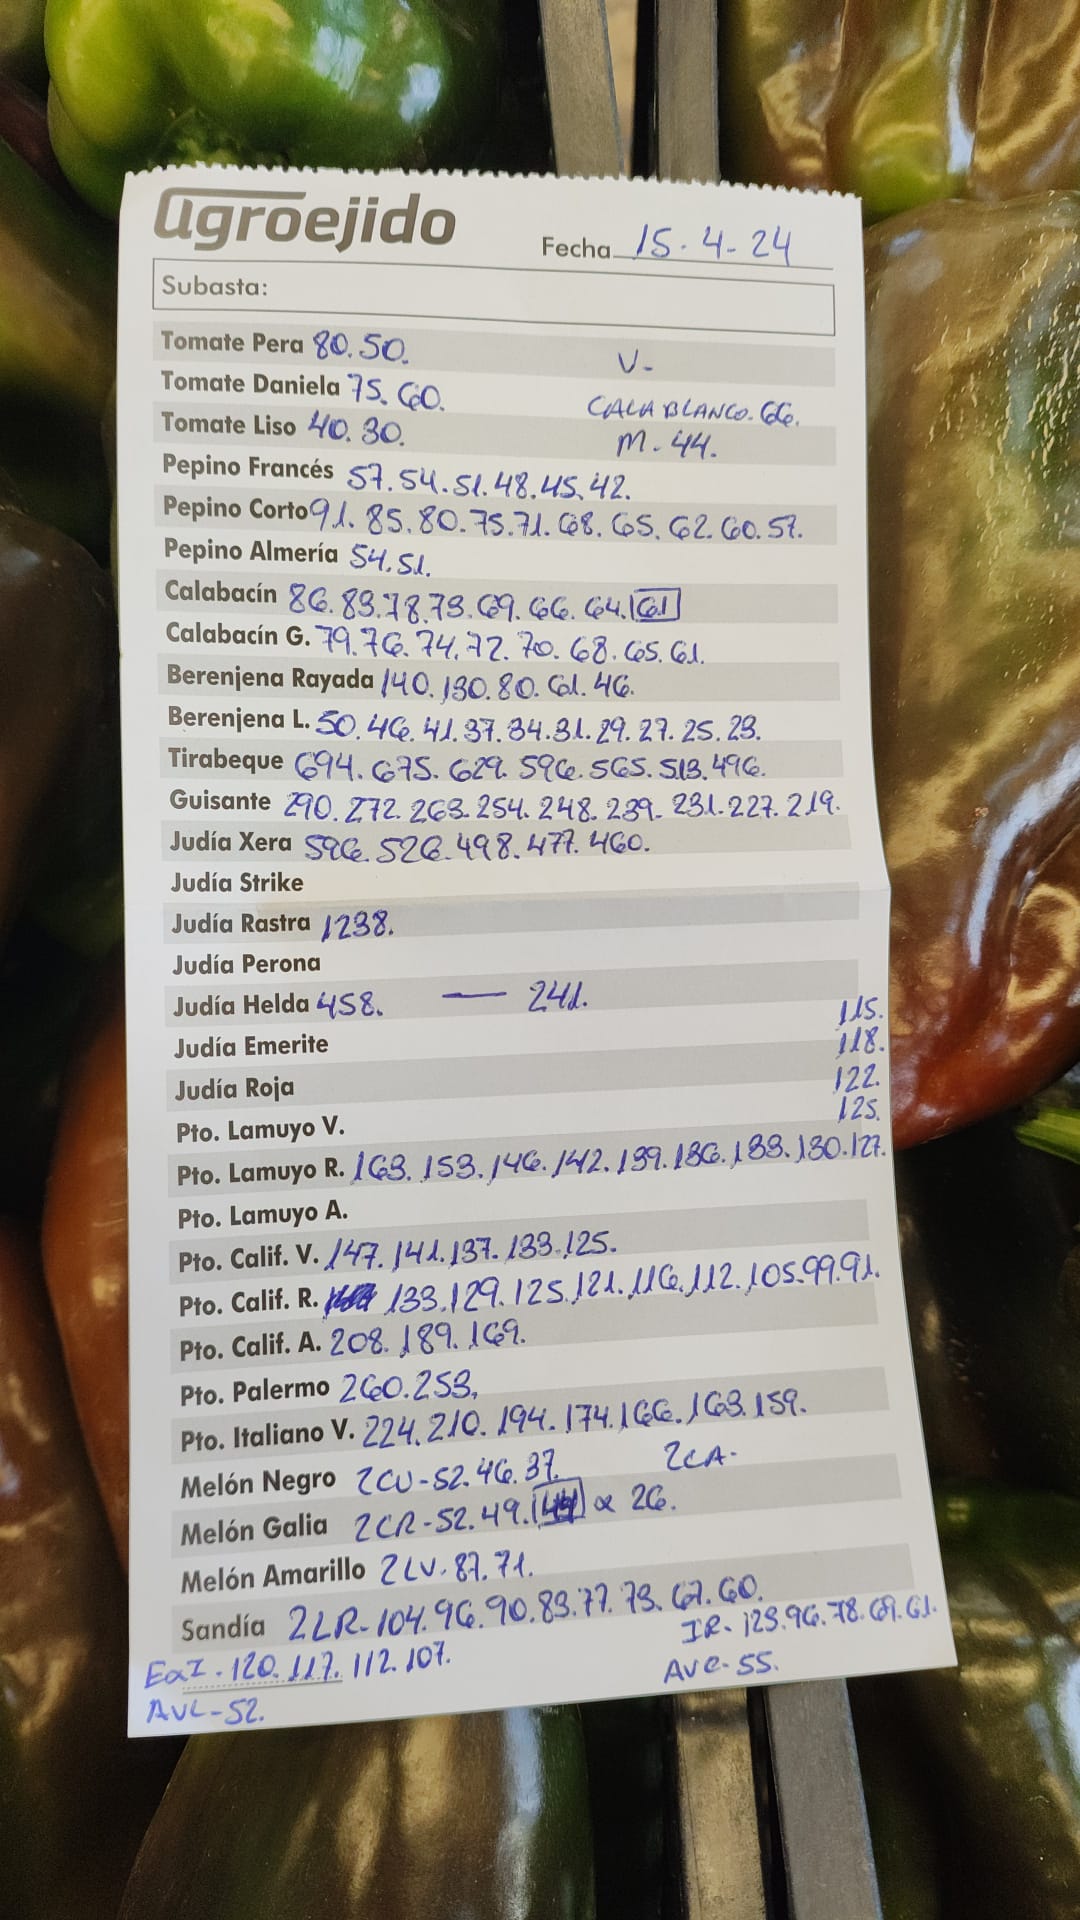 agroejido
Fecha 15-4-24
Subasta:
Tomate Pera 80.50. V-
Tomate Daniela 75.60. CALABLANCO-66.
Tomate Liso 40.30. M-44.
Pepino Francés 57.54.51.48.45.42.
Pepino Corto 91.85.80.75.71.68.65.62.60.57.
Pepino Almería 54.51.
Calabacín 86.83.78.73.69.66.64.61
Calabacín G. 79.76.74.72.70.68.65.61.
Berenjena Rayada 140.130.80.61.46.
Berenjena L. 50.46.41.37.34.31.29.27.25.23.
Tirabeque 694.675.629.596.565.513.496.
Guisante 290.272.263.254.248.239.231.227.219.
Judía Xera 596.526.498.477.460.
Judía Strike
Judía Rastra 1238.
Judía Perona
Judía Helda 458. — 241.
115.
Judía Emerite 118.
Judía Roja 122.
Pto. Lamuyo V. 125.
Pto. Lamuyo R. 163.153.146.142.139.136.133.130.127.
Pto. Lamuyo A.
Pto. Calif. V. 147.141.137.133.125.
Pto. Calif. R. 133.129.125.121.116.112.105.99.91.
Pto. Calif. A. 208.189.169.
Pto. Palermo 260.253.
Pto. Italiano V. 224.210.194.174.166.163.159.
Melón Negro 2CU-52.46.37. 2CA-
Melón Galia 2CR-52.49. 26.
Melón Amarillo 2LV-87.71.
Sandía 2LR-104.96.90.83.77.73.67.60.
IR-123.96.78.69.61.
EaI-120.117.112.107.
AVC-55.
AVL-52.